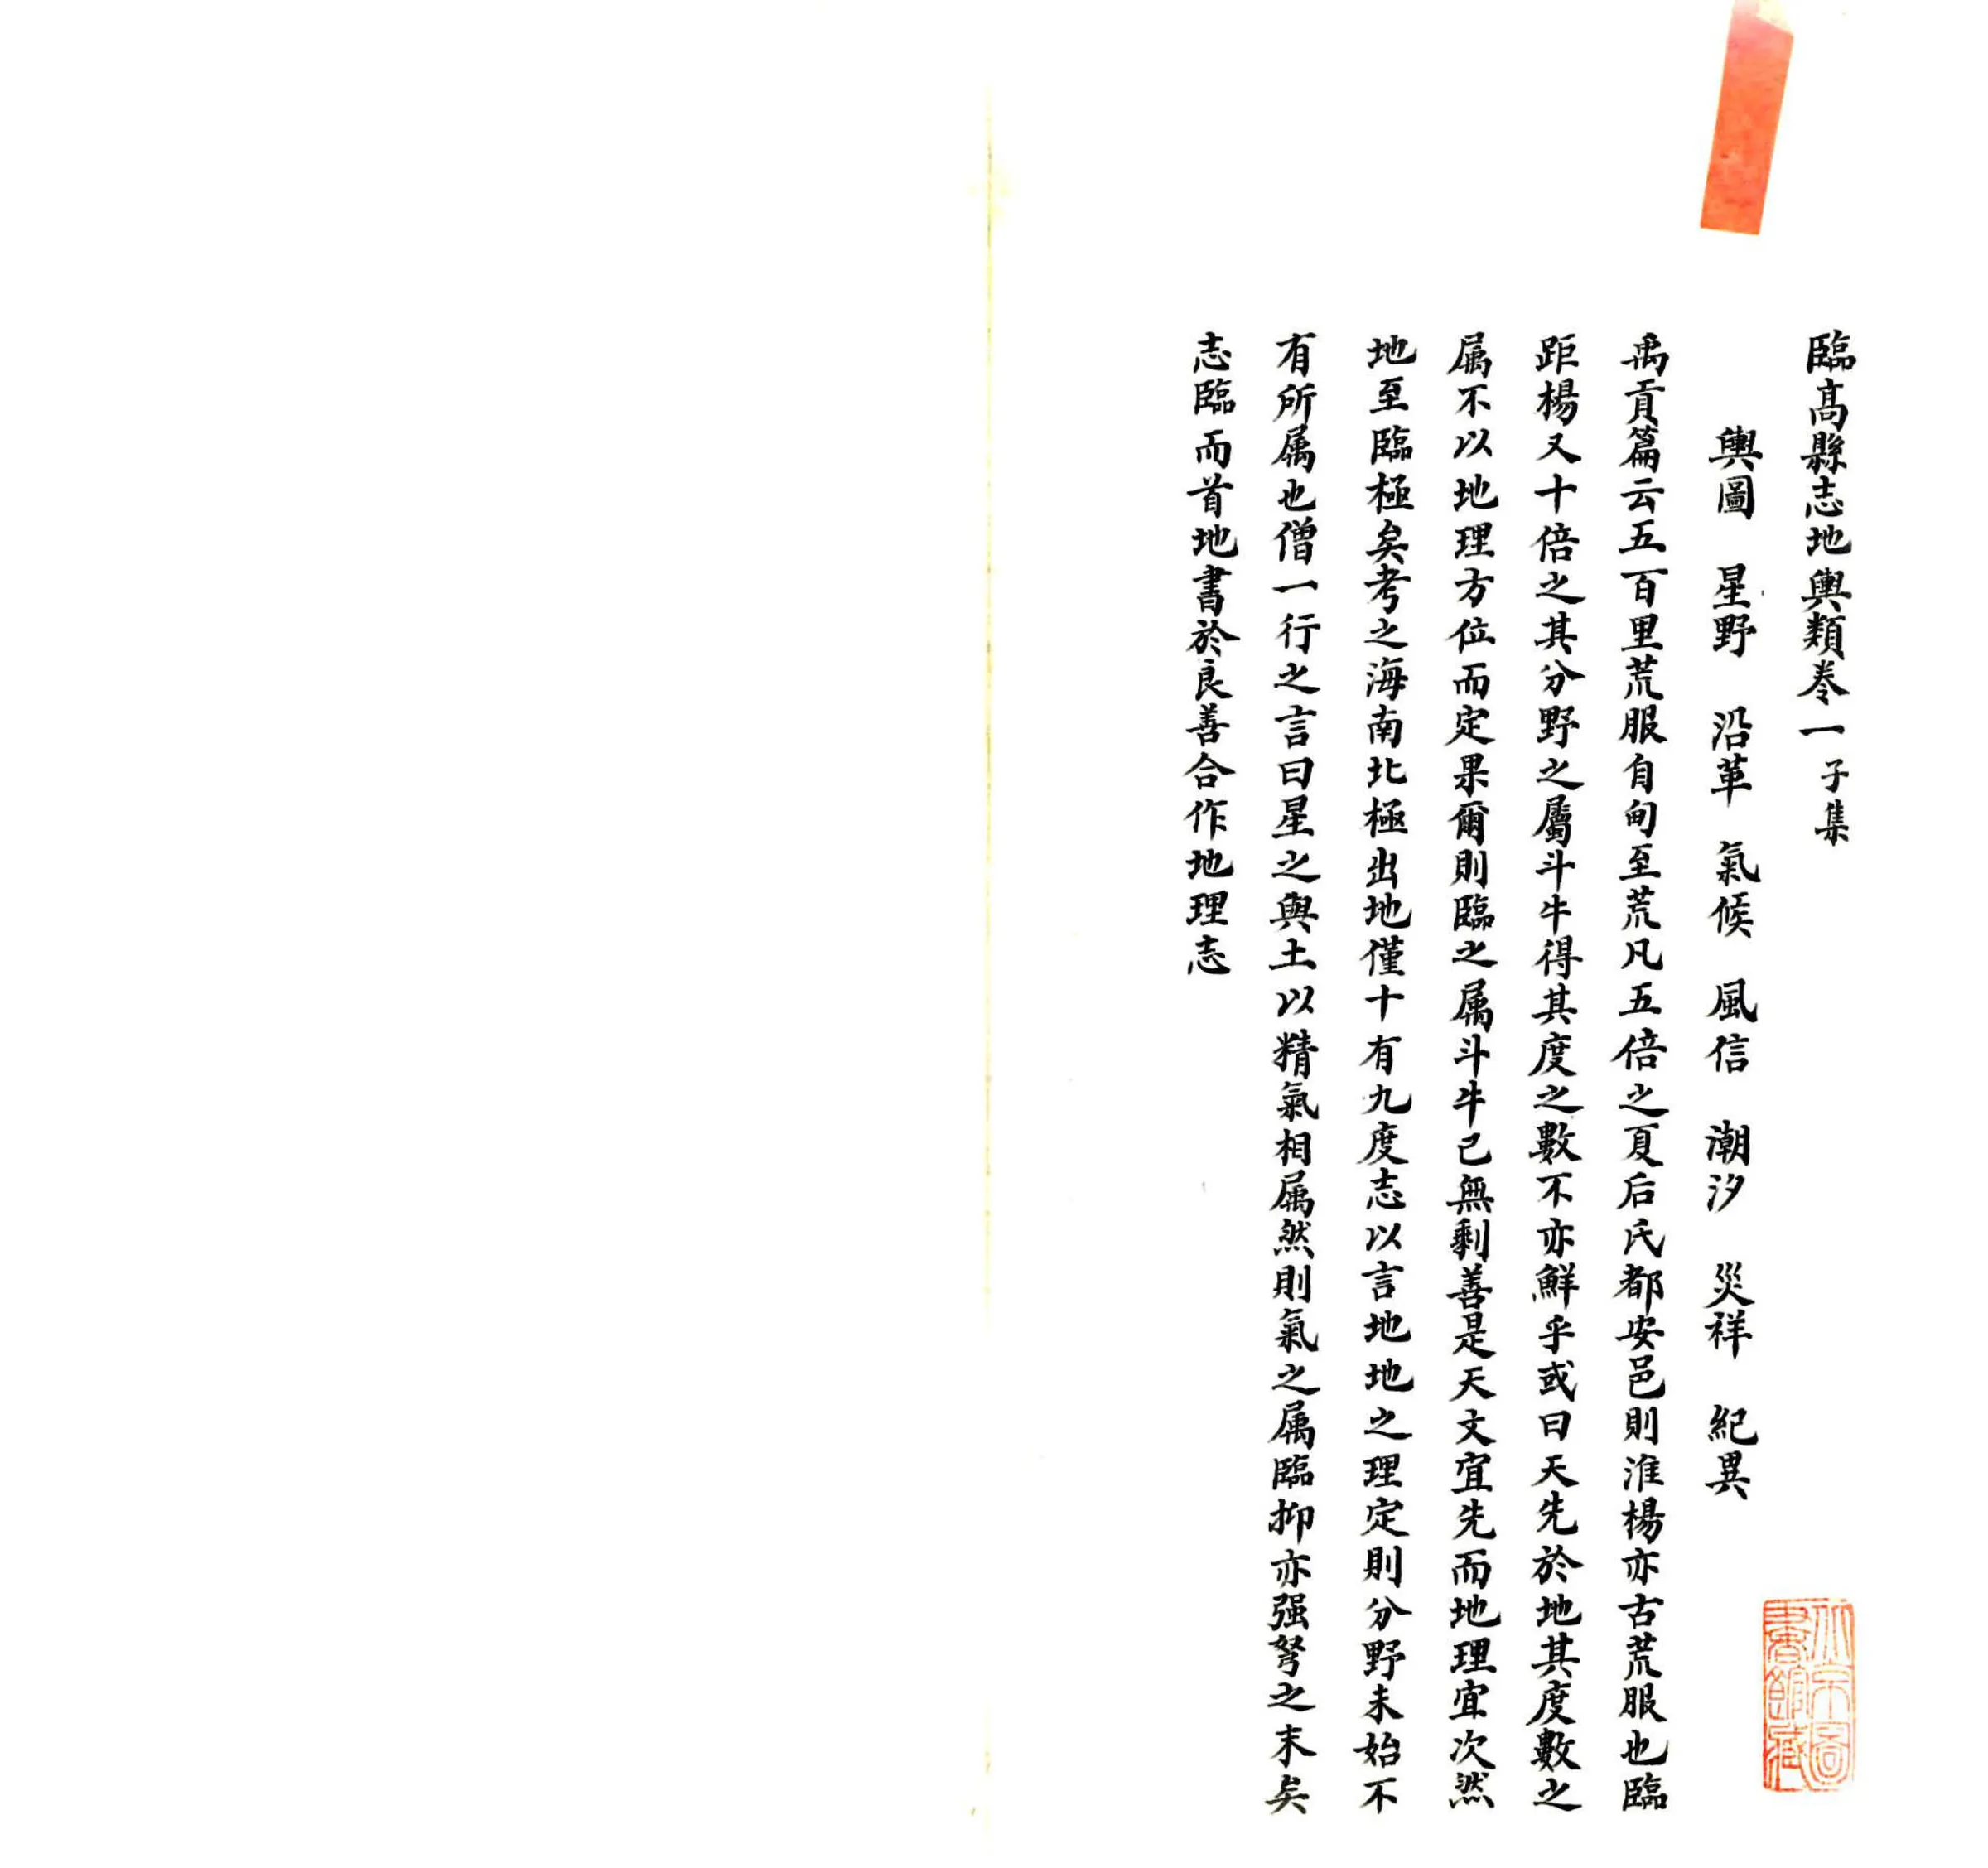 臨高縣志地輿類卷一 子集
輿圖 星野 沿革 氣候 風信 潮汐 災祥 紀異
禹貢篇云五百里荒服自甸至荒凡五倍之夏后氏都安邑則淮楊亦古荒服也臨
距楊又十倍之其分野之屬斗牛得其度之數不亦鮮乎或曰天先於地其度數之
属不以地理方位而定果爾則臨之属斗牛已無剩善是天文宜先而地理宜次然
地至臨極矣考之海南北極出地僅十有九度志以言地地之理定則分野未始不
有所属也僧一行之言曰星之與土以精氣相属然則氣之属臨抑亦强弩之末矣
志臨而首地書於良善合作地理志